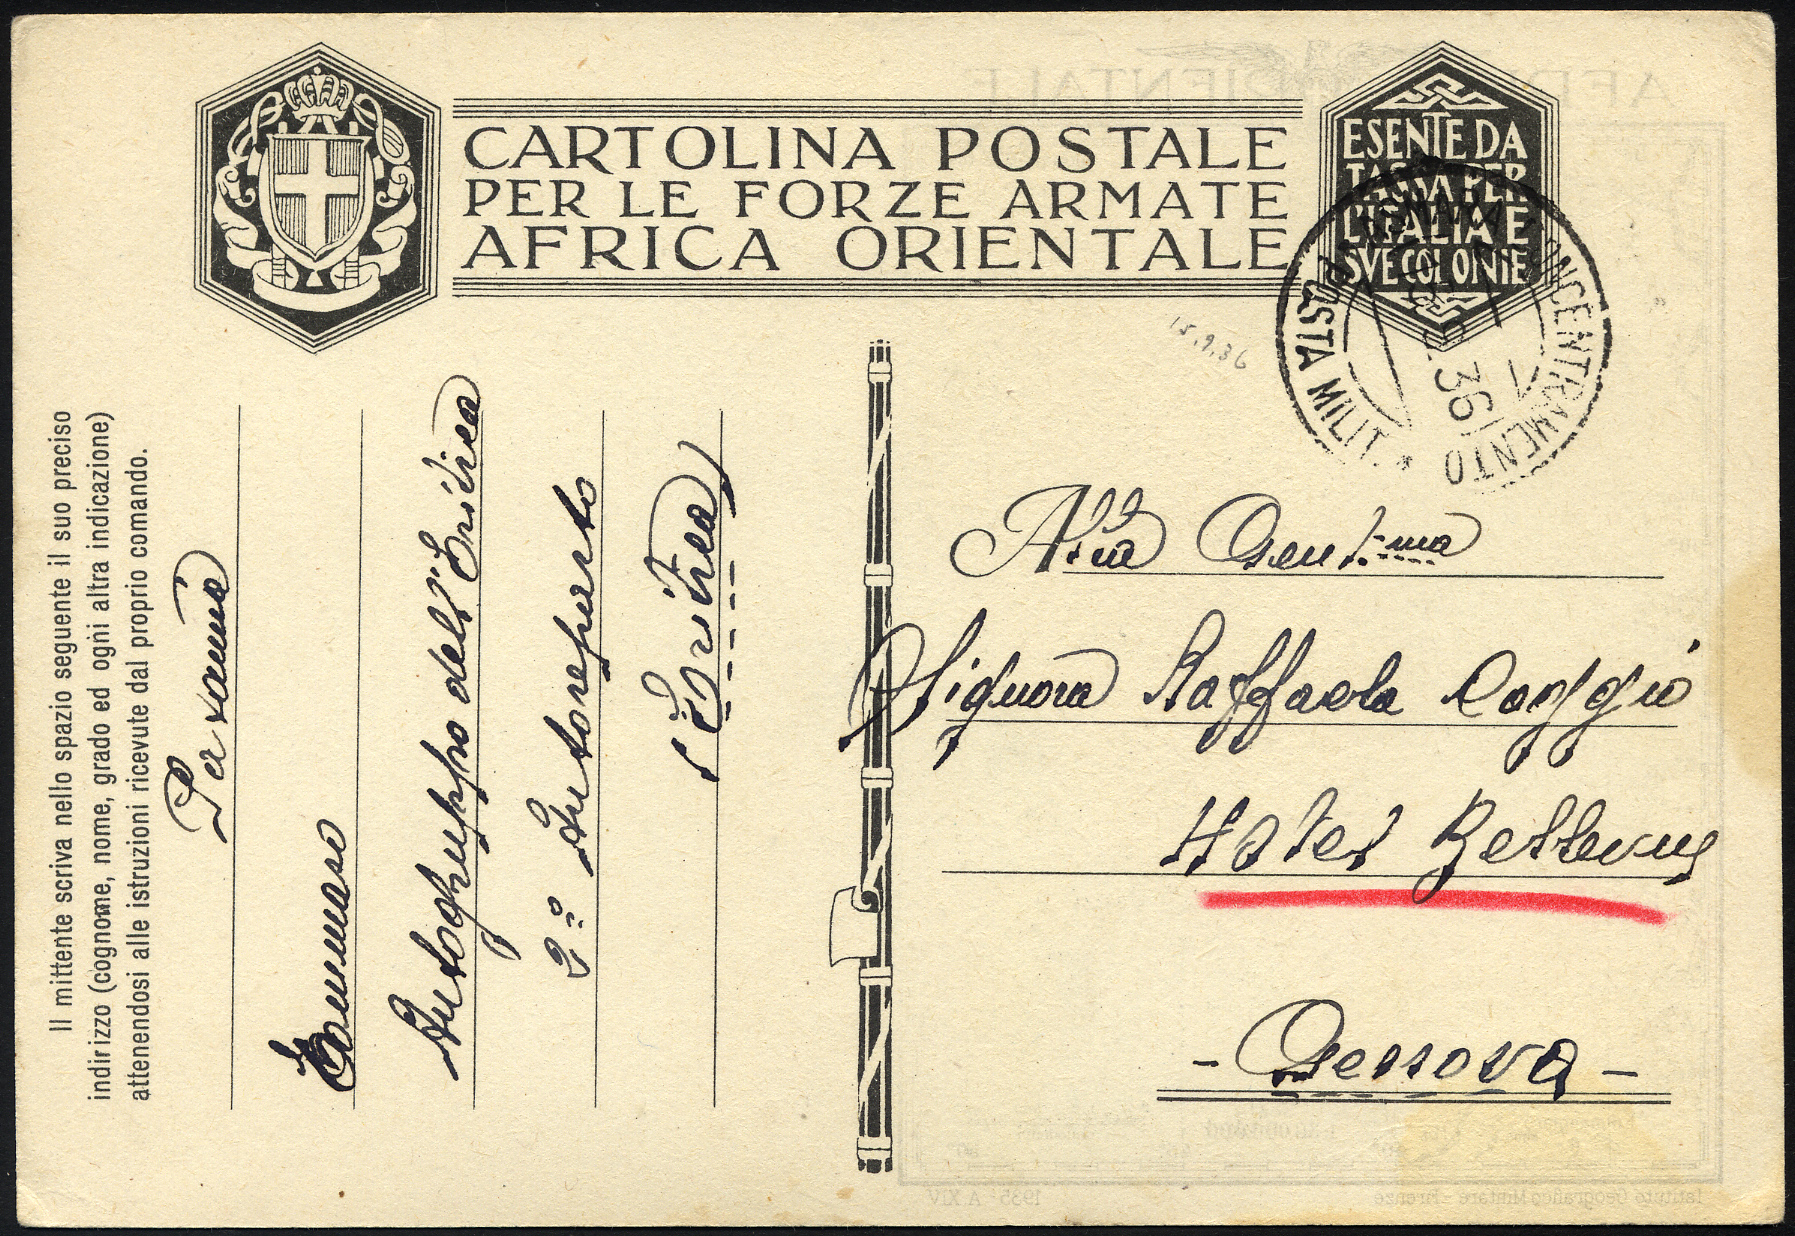 CARTOLINA POSTALE
PER LE FORZE ARMATE
AFRICA ORIENTALE
ESENTE DA
TASSA PER
L'ITALIA E
SVE COLONIE
POSTA MILIT. * ASMARA CONCENTRAMENTO
36
15.9.36
Il mittente scriva nello spazio seguente il suo preciso
indirizzo (cognome, nome, grado ed ogni altra indicazione)
attenendosi alle istruzioni ricevute dal proprio comando.
Tommaso
Autogruppo dell'Eritrea
2º Autoreparto
Eritrea
Alla Gent.ma
Signora Raffaela
Hotel Bellevue
- Genova -
AFRICA ORIENTALE
1935 A XIV
Istituto Geografico Militare - Firenze